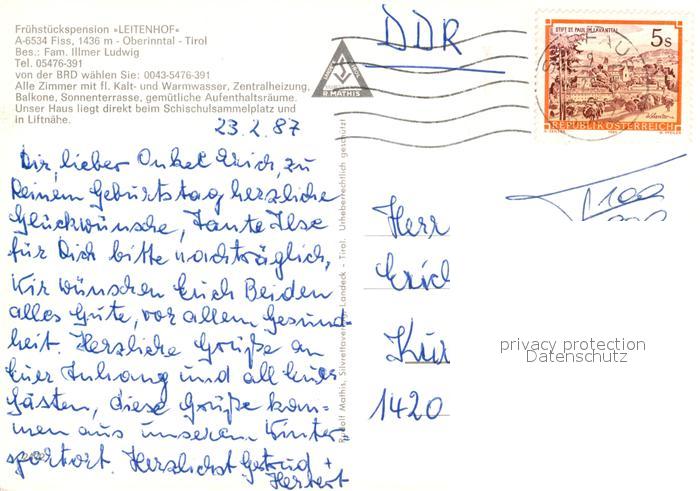 Frühstückspension »LEITENHOF«
A-6534 Fiss, 1436 m - Oberinntal - Tirol
Bes.: Fam. Illmer Ludwig
Tel. 05476-391
von der BRD wählen Sie: 0043-5476-391
Alle Zimmer mit fl. Kalt- und Warmwasser, Zentralheizung,
Balkone, Sonnenterrasse, gemütliche Aufenthaltsräume.
Unser Haus liegt direkt beim Schischulsammelplatz und
in Liftnähe.
23.2.87
Dir, lieber Onkel Erich, zu
Deinem Geburtstag herzliche
Glückwünsche, Tante Ilse
für Dich bitte nachträglich,
Wir wünschen Euch Beiden
alles Gute, vor allem Gesund-
heit. Herzliche Grüße an
Euer Anhang und all Eure
Gästen, diese Grüße kom-
men aus unserem Winter
sportort. Herzlichst Gertrud +
Herbert
R. MATHIS
Rudolf Mathis, Silvrettaverlag, Landeck - Tirol. Urheberrechtlich geschützt
DDR
STIFT ST. PAUL IM LAVANTTAL
5s
REPUBLIK ÖSTERREICH
T 100
Herr
Erich
1420
privacy protection
Datenschutz